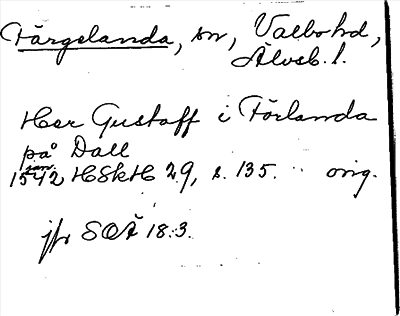 Färgelanda, sn, Valbo hd,
Älvsb. l.
Her Gustaff i Förlanda
på Dall
1542 HSkH 29, s. 135. orig.
jfr SOÄ 18:3.